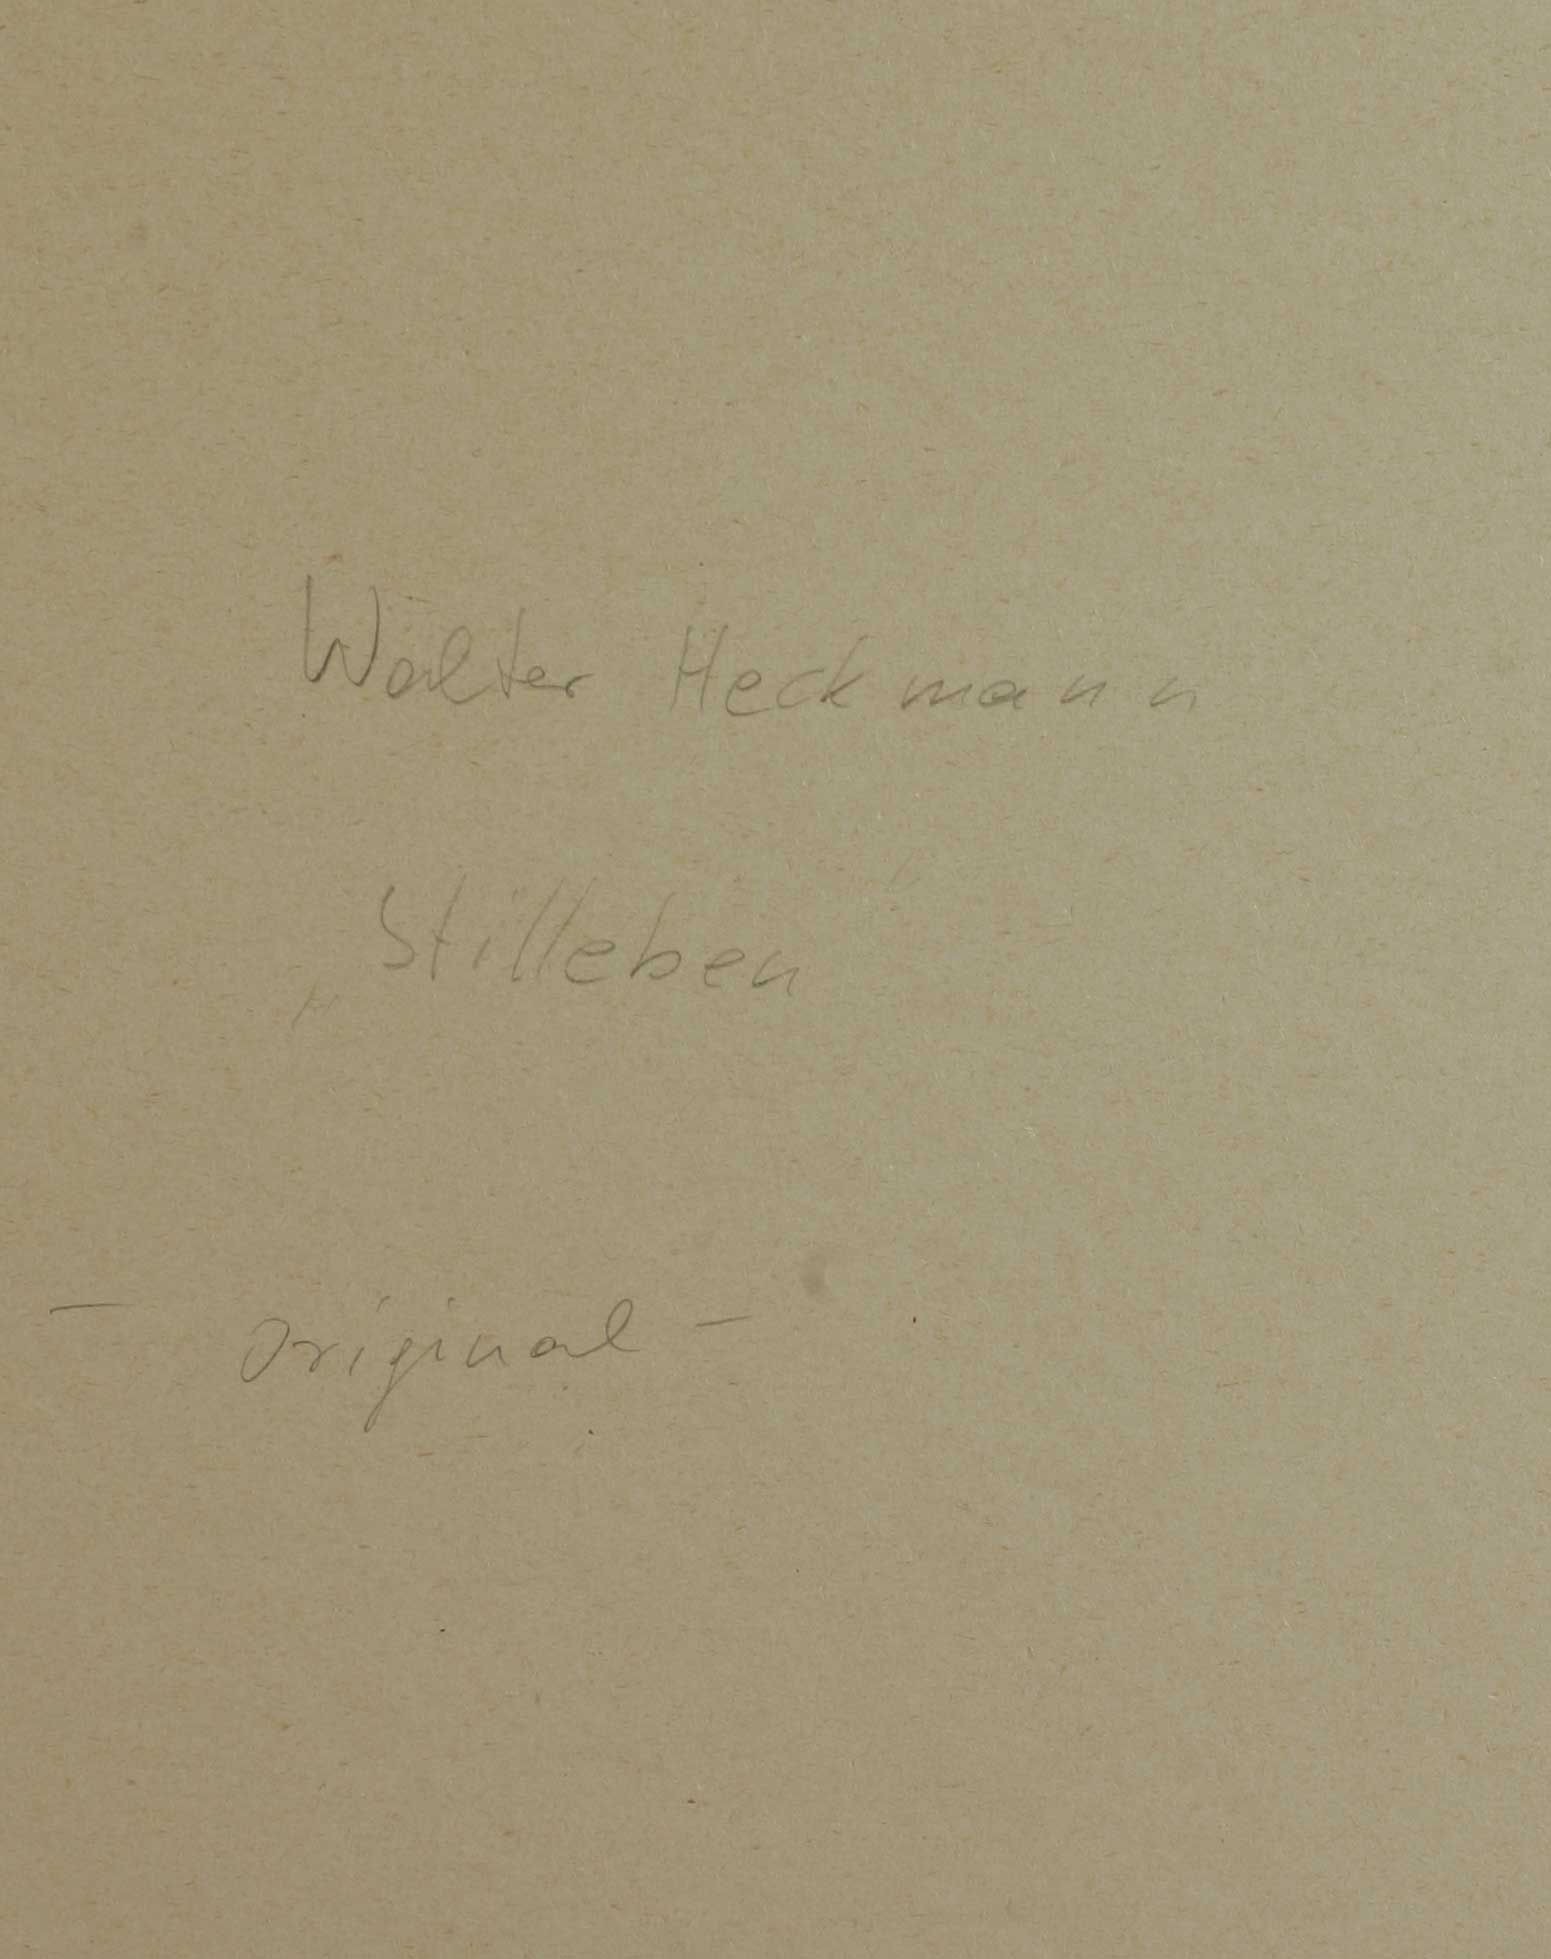 Walter Heckmann
Stilleben
- original -